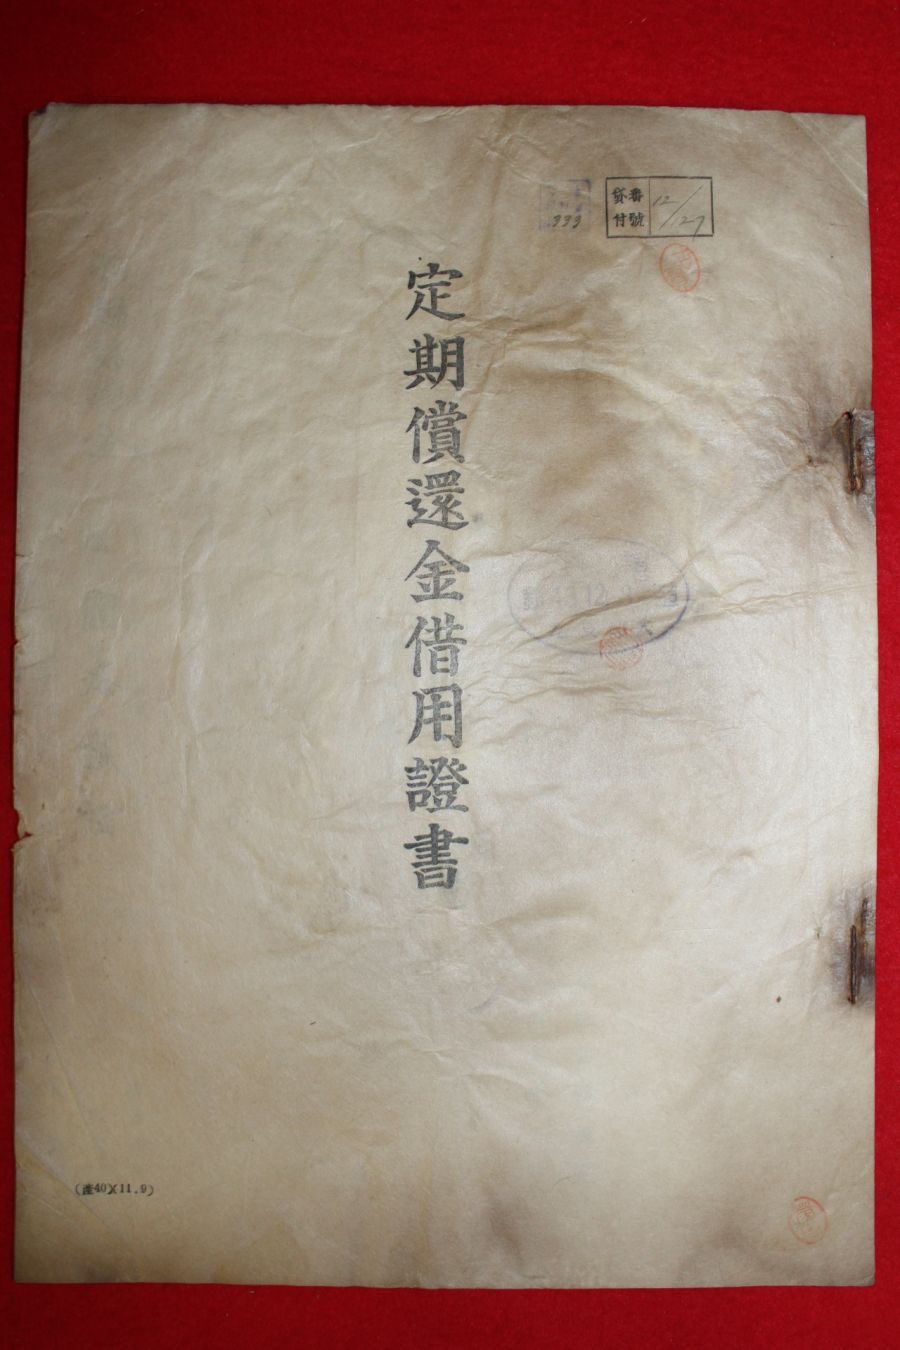 貸付番號 12/127
333
定期償還金借用證書
12
(產40)(11.9)